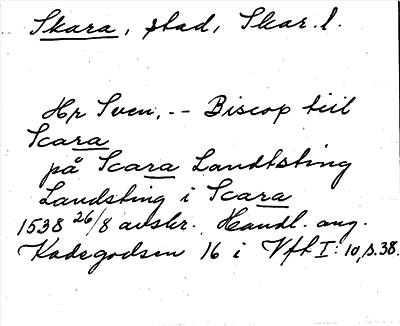 Skara, stad, Skar. l.
Hr Sven, -- Biscop till
Scara
på Scara Landtsting
Landsting i Scara
1538 26/8 avskr. Handl. ang.
Kadsgodsen 16 i VFT I: 10, s. 38.